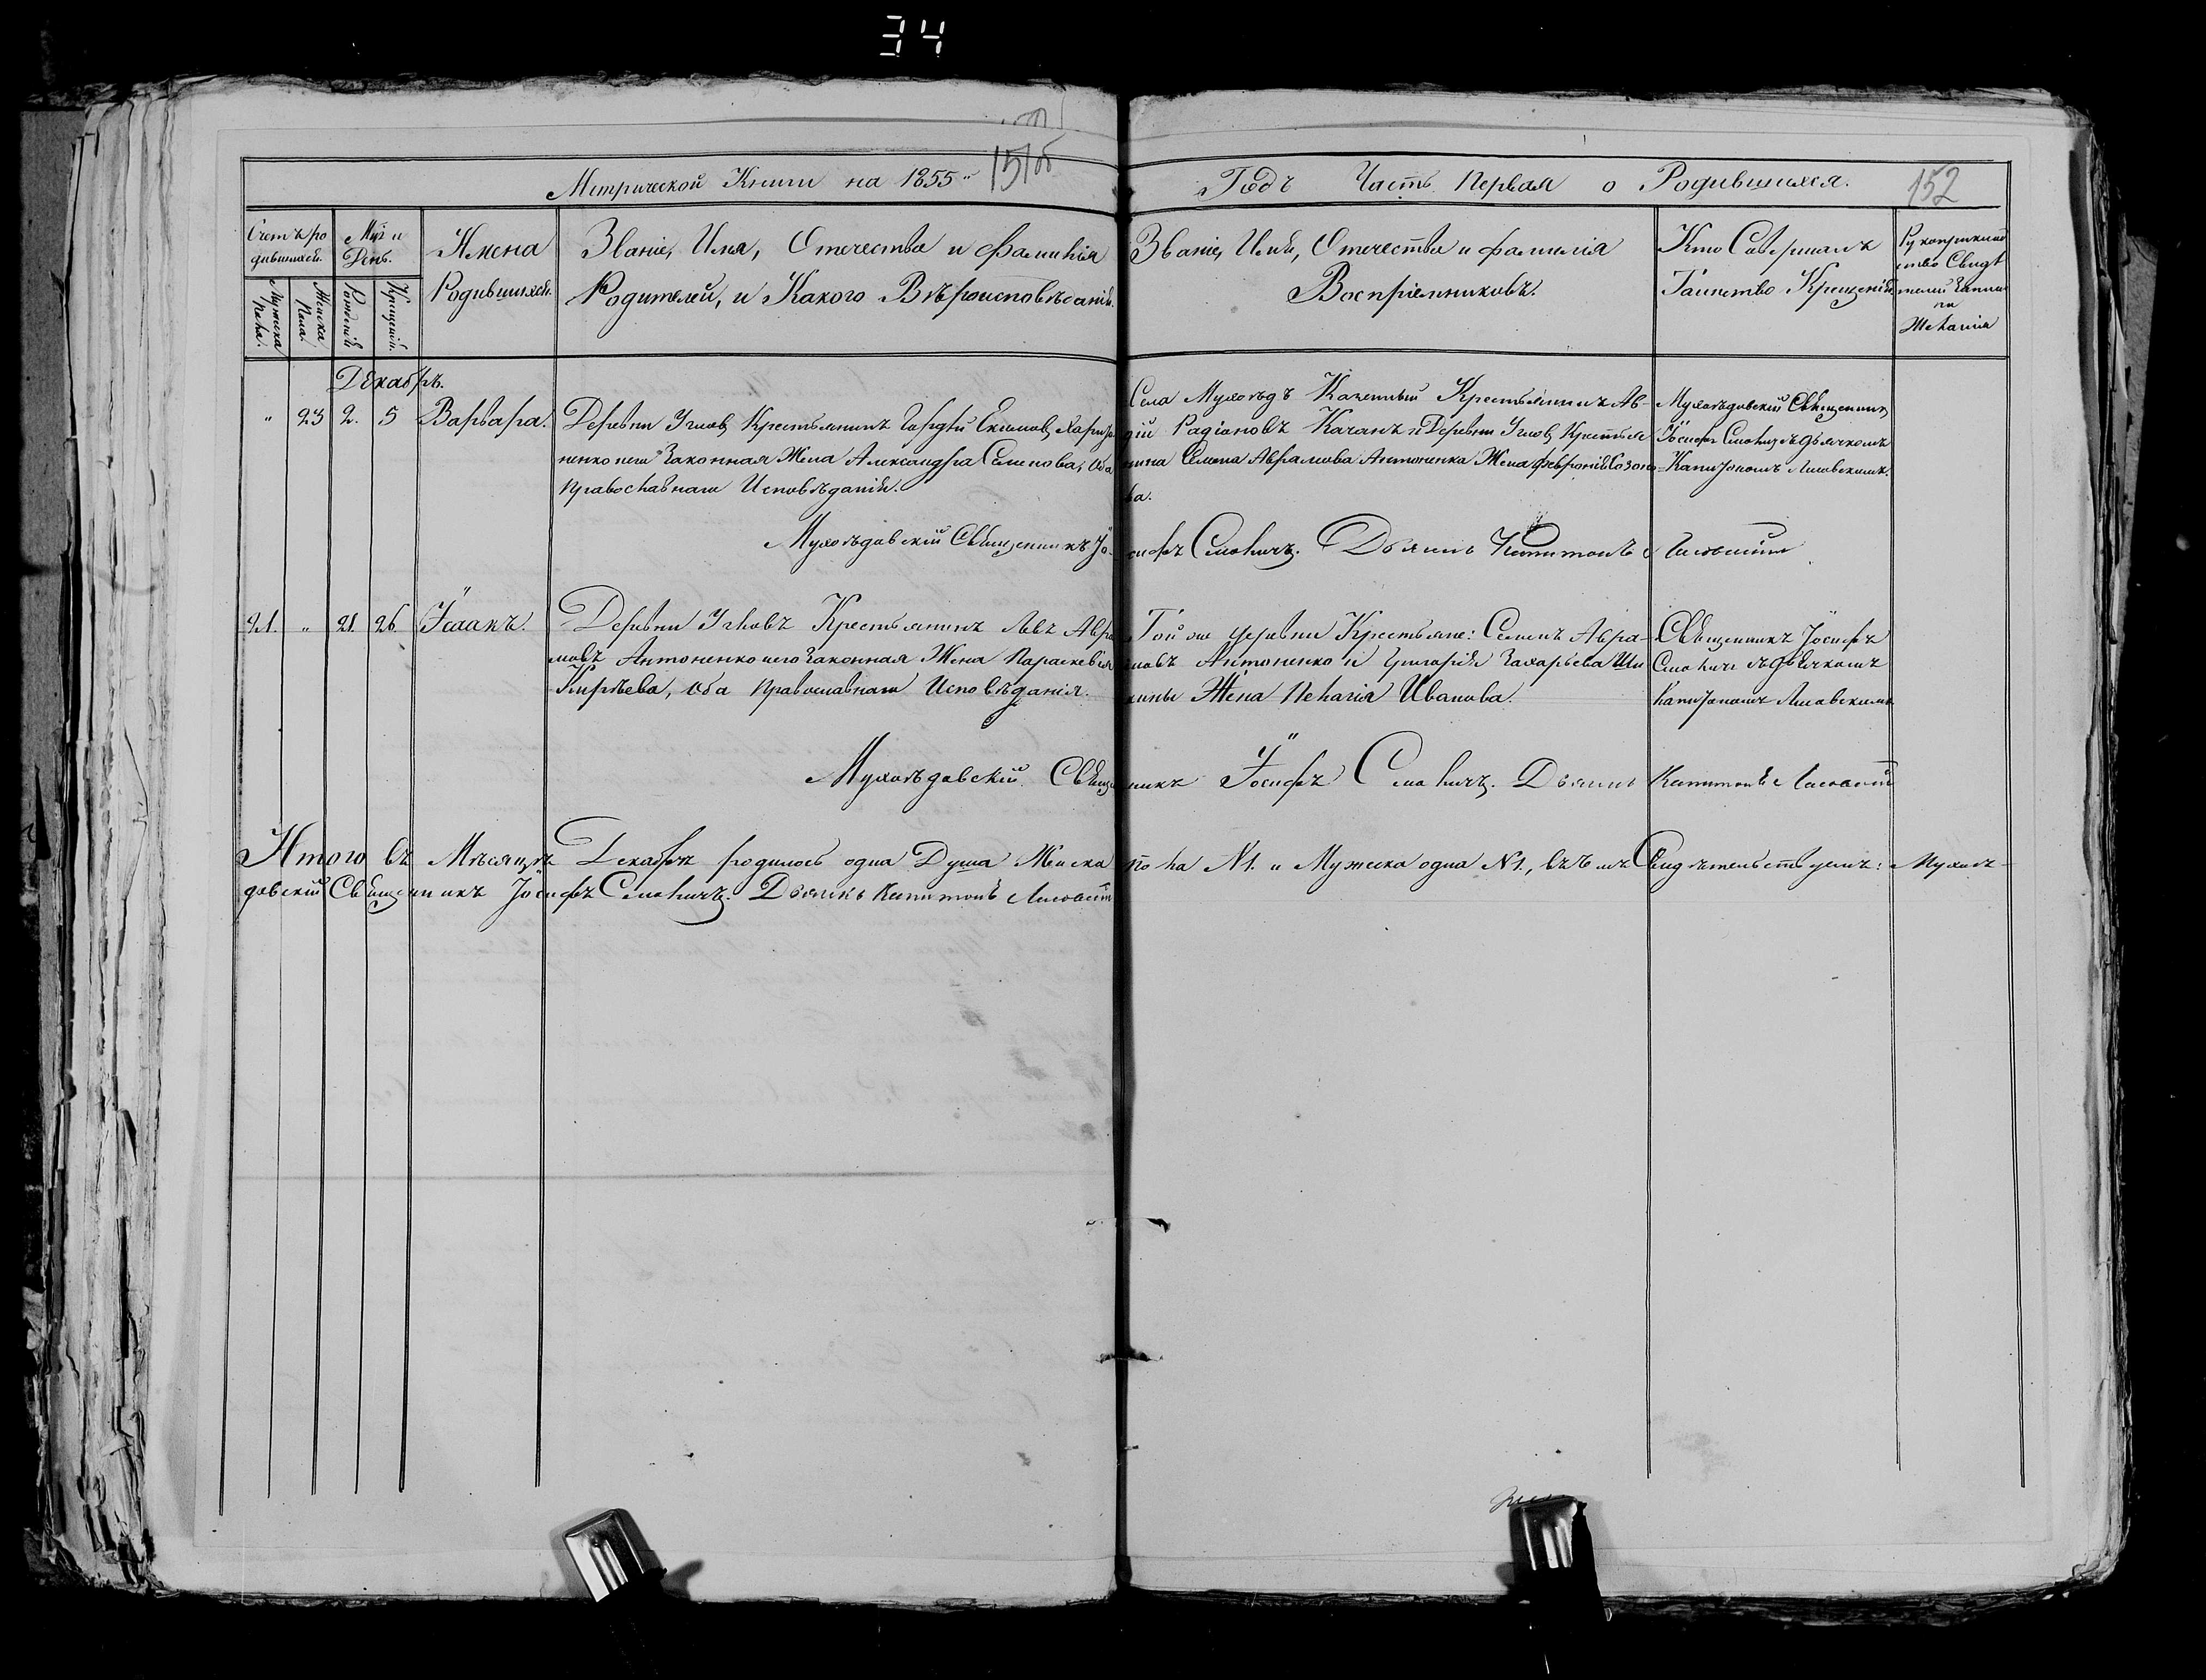 34
151об
Метрической Книги на 1855"
Годъ Часть Первая о Родившихся.
152
Счетъ ро
дившихся.
Мужеска
Пола.
Женска
Пола
Мцъ и
День.
Рожденія
Крещенія.
Имена
Родившихся.
Званіе, Имя, Отечество и фамилія
Родителей, и Какого Вѣроисповѣданія.
Званіе, Имя, Отечество и фамилія
Воспріемниковъ.
Кто Совершалъ
Таинство Крещенія
Рукоприкладство Свидѣтелей
по
Желанію
Декабръ.
" 23 2. 5 Варвара.
Деревни Углов Крестьянинъ Екимов
ненко и его Законная Жена Александра Семенова, Оба
Православнаго Исповѣданія.
Села Мухоѣдъ Казенный Крестьянинъ Ав-
дій Радіоновъ Качанъ и Деревни Углов Крестьянина
Семена Абрамова Антоненка Жена Февронія Созоно
ва.
Мухоѣдовскій Священникъ
Іосифъ Смоличъ съ дьячкомъ
Капитономъ Лисовскимъ.
Мухоѣдовскій Священникъ Іосифъ Смоличъ. Дьячекъ Капитонъ Лисовскій
21. " 21. 26. Ісаакъ.
Деревни Угловъ Крестьянинъ Левъ Авра
мовъ Антоненко и его законная Жена Параскевія
Кирѣева, Оба Православнаго Исповѣданія.
Той же деревни Крестьяне: Семенъ Авра-
мовъ Антоненко и Григорія Захарьева
Жена Пелагія Иванова.
Священникъ Іосифъ
Смоличъ съ дьячкомъ
Капитономъ Лисовскимъ
Мухоѣдовскій Священникъ Іосифъ Смоличъ. Дьячекъ Капитонъ Лисовскій
Итого въ Мѣсяцѣ Декабрѣ родилось одна Душа Женска пола №1. и Мужеска одна №1., въ чемъ Свидѣтельствуемъ: Мухоѣ-
довскій Священникъ Іосифъ Смоличъ. Дьячекъ Капитонъ Лисовскій